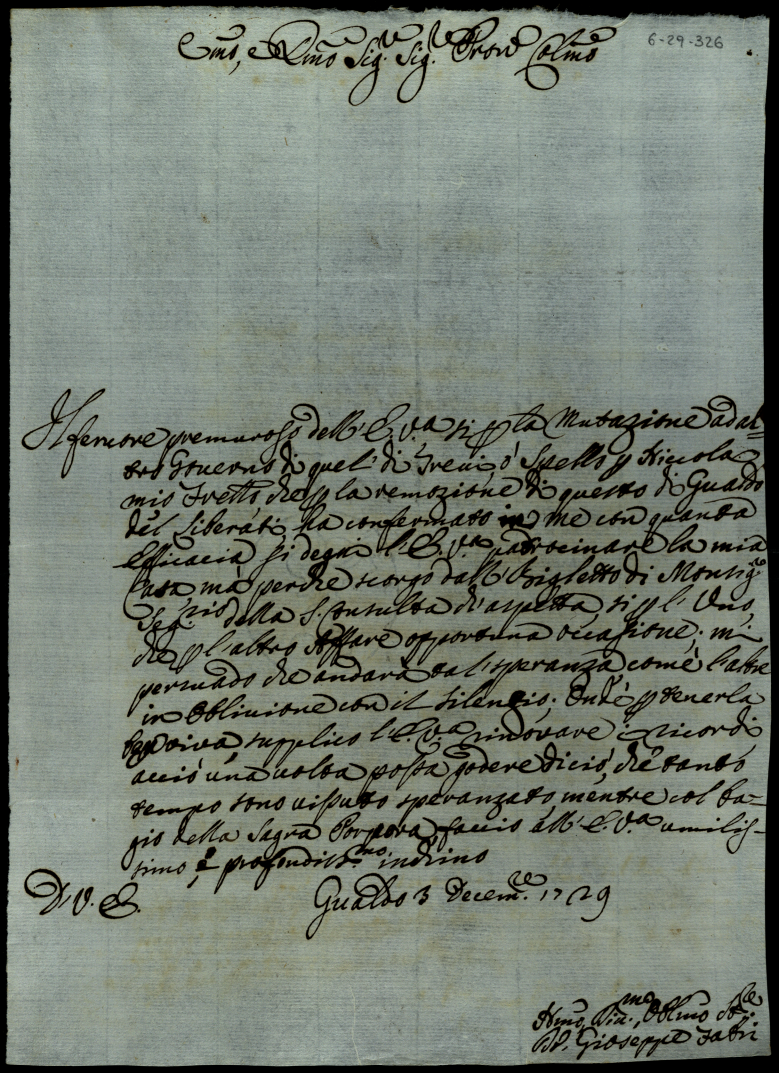 6-29-326
Emo, e Rmo Sig.re Sig.re Pron Colmo
Il fervore premuroso dell'E.V.a si p la Mutazione ad al-
tro Governo di quel' di Trevi, ò Spello p Niccola
mio Fretto che p la remozione di questo di Gualdo
del Liberati hà confermato in me con quanta
Efficacia si degni l'E.V.a patrocinare la mia
Casa mà perche scorgo dall'Biglietto di Monsig.re
Seg.rio della S. Consulta ch'aspetta, si p l'Uno,
che p l'altro Affare opportuna occasione; mi
persuado che andarà tal'speranza come l'altre
in Oblivione con il silenzio. Ond'è p tenerla
viva, supplico l'E.V.a rinovare i ricordi
acciò una volta possa godere di ciò, che tanto
tempo sono vissuto speranzato, mentre col ba-
gio della Sagra Porpora faccio all'E.V.a umilis-
simo, e profondiss.mo inchino
D.V.E. Gualdo 3 Decem.re 1729
Hmo, Dev.mo, Oblmo Se.re
Gioseppe Fabri